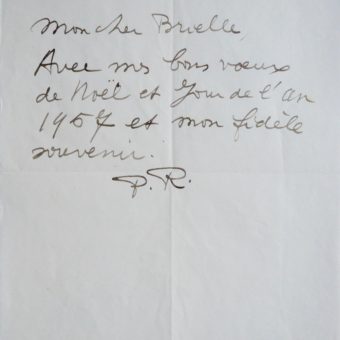 Mon cher Brielle,
Avec mes bons vœux
de Noël et Jour de l'an
1957 et mon fidèle
souvenir.
P.R.